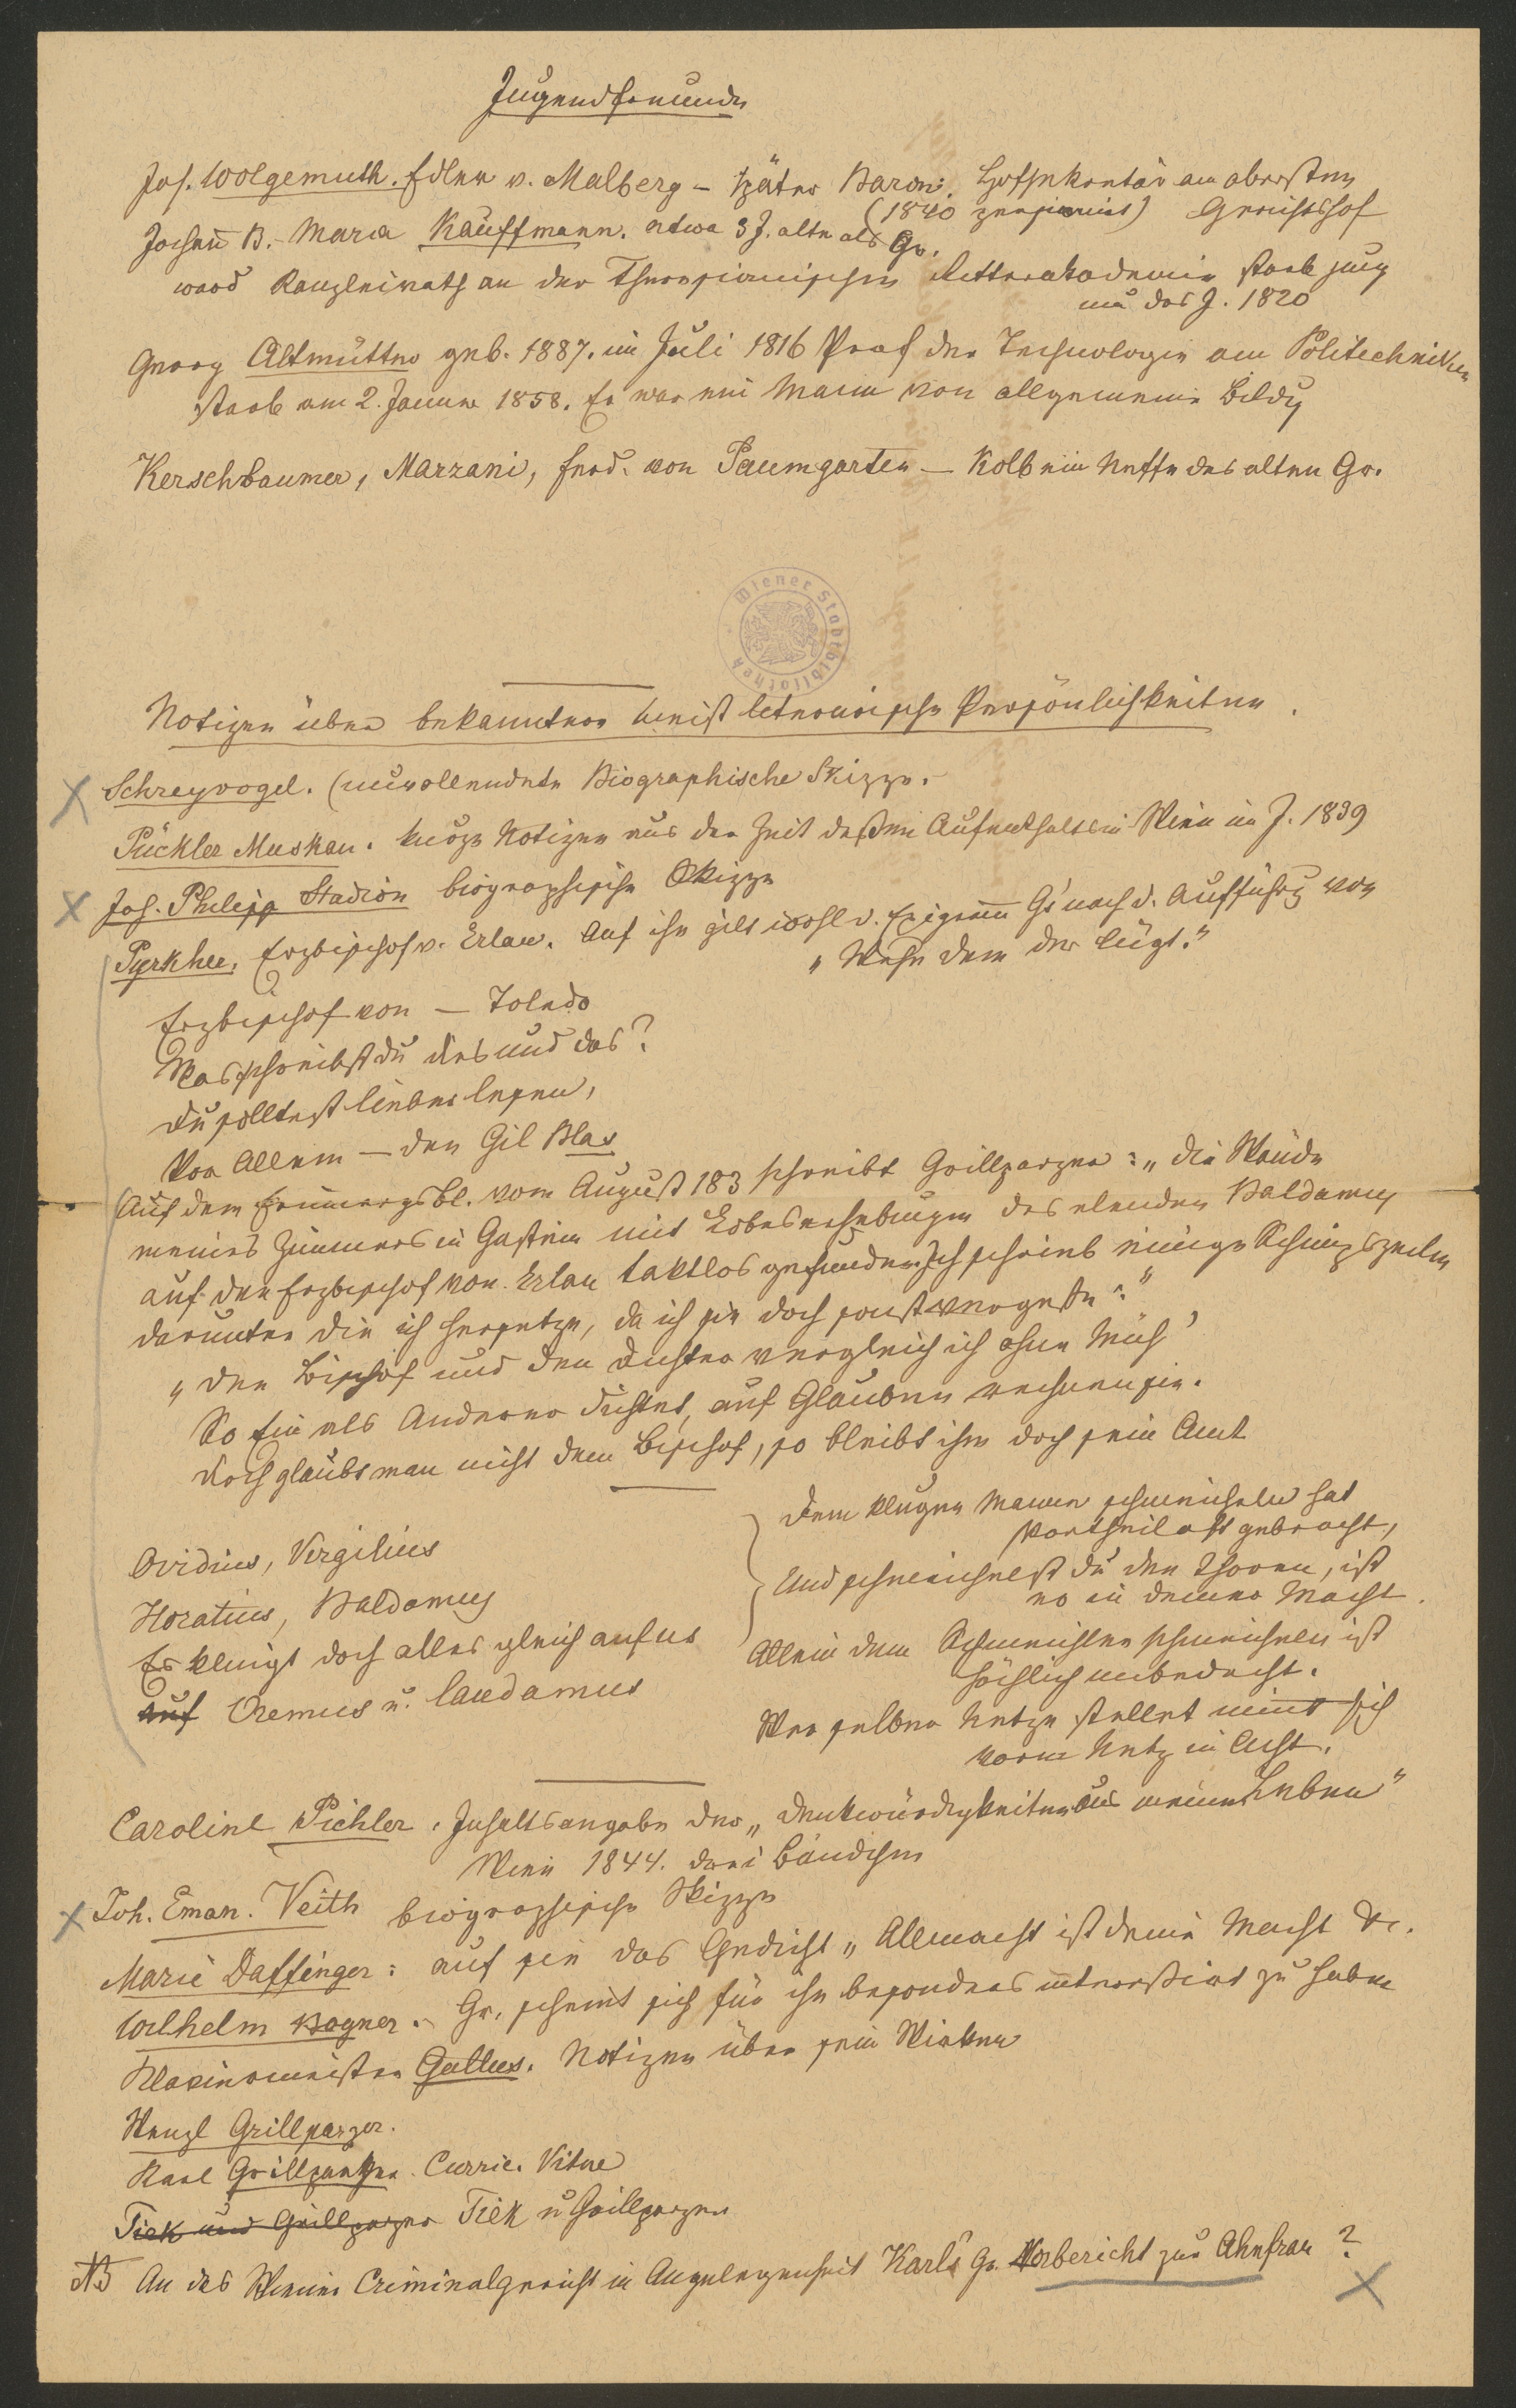 Jugendfreunde
Jos. Wolgemuth. Edler v. Malberg – später Baron. Hofsekretär am obersten
(1840 pensionirt) Gerichtshof
Johann B. Maria Kauffmann. etwa 3 J. älter als Gr.
ward Kanzleirath an der Theresianischen Ritterakademie starb jung
um das J. 1820
Georg Altmütter geb. 1887. im Juli 1816 Prof der Technologie am Politechniken
starb am 2. Januar 1858. Er war ein Mann von allgemeine Bildg
Kerschbaumer, Marzani, Ferd. von Paumgarten – Kolb ein Neffe des alten Gr.
Wiener Stadtbibliothek
Notizen über bekanntere meist literarische Persönlichkeiten.
Schreyvogel. (unvollendete Biographische Skizze.
Pückler Muskau. kurze Notizen aus der Zeit deßen Aufenthalts in Wien im J. 1839
Joh. Philipp Stadion biographische Skizze
Pyrkher, Erzbischof v. Erlau. Auf ihn gilt wohl d. Epigram̄ Gs nach d. Aufführg von
„Weh dem der lügt."
Erzbischof von – Toledo
Was schreibst du dies und das?
Du solltest lieber lesen,
Vor Allem – den Gil Blas
(Auf dem Erinnergsbl. vom August 183 schreibt Grillparzer: „Die Wände
meines Zimmers in Gastein mit Lobeserhebungen des elenden Baldamus
auf den Erzbischof von Erlau taktlos gefunden. Ich schrieb einige Schimpfzeilen
darunter die ich hersetze, da ich sie doch sonst vergeße:"
„Den Bischof und den Dichter vergleich ich ohne Müh'
So Ein als Anderer dichtet, auf Glauben rechnen sie.
Doch glaubt man nicht dem Bischof, so bleibt ihm doch sein Amt
Ovidius, Vergilius
Horatius, Baldamus
Es klingt doch alles gleich auf us
auf Oremus u. laudamus
Dem klugen Mannen schmeicheln hat
Vortheil oft gebracht,
Und schmeichelst du den Thoren, ist
es in deiner Macht.
Allein dem Schmeichler schmeicheln ist
höchlich unbedacht.
Wer selber Netze stellet nim̄t sich
vorm Netz in Acht.
Caroline Pichler. Inhaltsangabe der „Denkwürdigkeiten aus meinem Leben"
Wien 1844. drei Bändchen
Joh. Eman. Veith biographische Skizze
Marie Daffinger: auf sie das Gedicht „Allmacht ist deine Macht &c.
Wilhelm Bogner. Gr. scheint sich für ihn besonders interessirt zu haben
Klaviermeister Gallus. Notizen über sein Wirken
Wenzl Grillparzer.
Karl Grillparzer. Curric. Vitae
Tiek und Grillparzer Tiek u Grillparzer
NB An das Wiener Criminalgericht in Angelegenheit Karls Gr. Vorbericht zur Ahnfrau ?